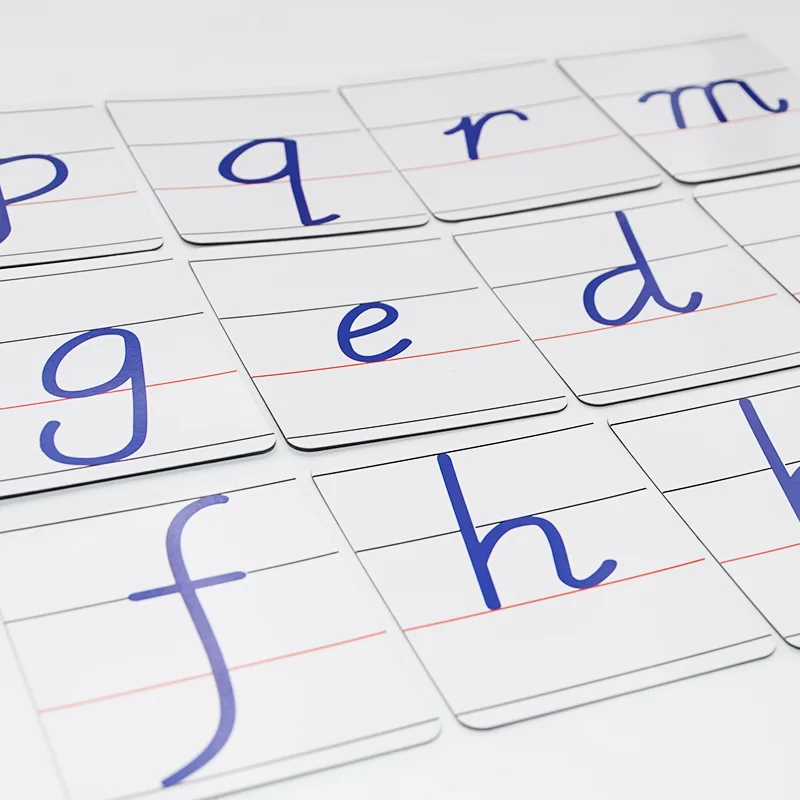 p q r m
g e d
f h